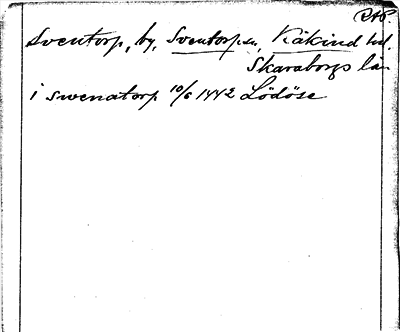 RAP.
Sventorp, by, Sventorp sn, Kåkind hd.
Skaraborgs län
i swenatorp 10/6 1442 Lödöse